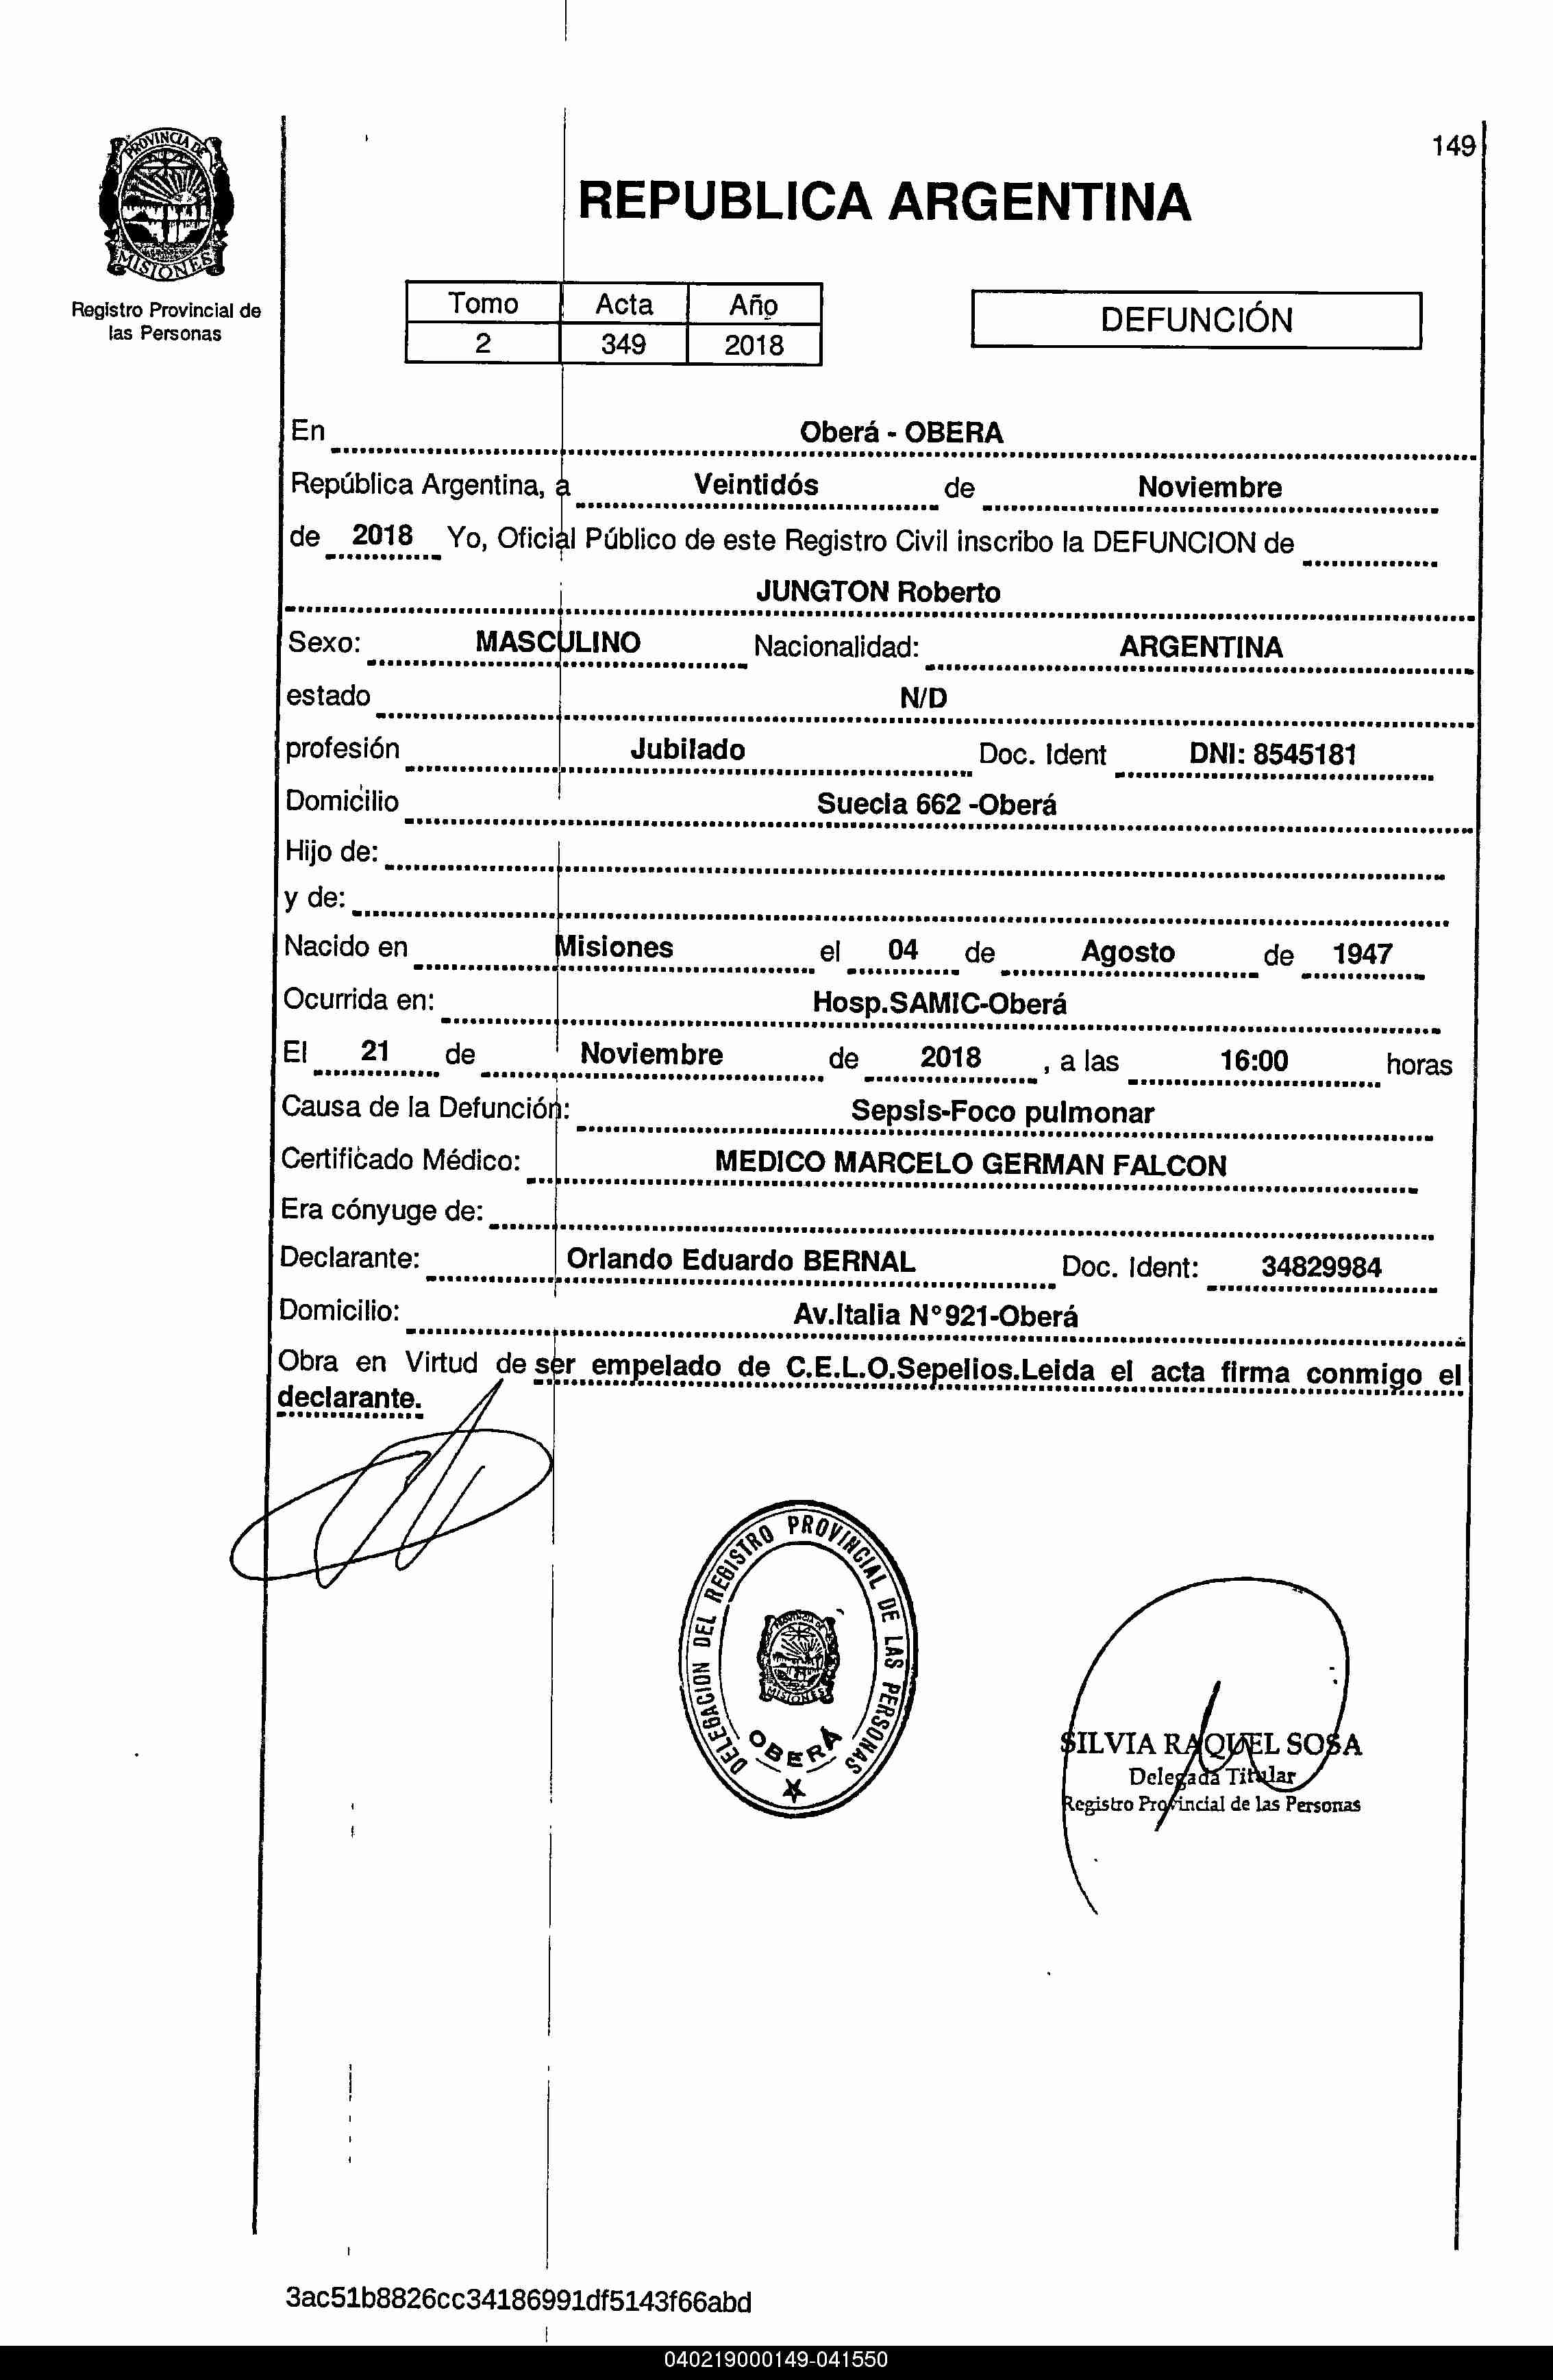 149
PROVINCIA DE
MISIONES
Registro Provincial de
las Personas
REPUBLICA ARGENTINA
Tomo Acta Año
2 349 2018
DEFUNCIÓN
En Oberá - OBERA
República Argentina, a Veintidós de Noviembre
de 2018 Yo, Oficial Público de este Registro Civil inscribo la DEFUNCION de
JUNGTON Roberto
Sexo: MASCULINO Nacionalidad: ARGENTINA
estado N/D
profesión Jubilado Doc. Ident DNI: 8545181
Domicilio Suecia 662 -Oberá
Hijo de:
y de:
Nacido en Misiones el 04 de Agosto de 1947
Ocurrida en: Hosp.SAMIC-Oberá
El 21 de Noviembre de 2018 , a las 16:00 horas
Causa de la Defunción: Sepsis-Foco pulmonar
Certificado Médico: MEDICO MARCELO GERMAN FALCON
Era cónyuge de:
Declarante: Orlando Eduardo BERNAL Doc. Ident: 34829984
Domicilio: Av.Italia N°921-Oberá
Obra en Virtud de ser empelado de C.E.L.O.Sepelios.Leida el acta firma conmigo el
declarante.
DELEGACION DEL REGISTRO PROVINCIAL DE LAS PERSONAS
PROVINCIA DE
MISIONES
OBERÁ
SILVIA RAQUEL SOSA
Delegada Titular
Registro Provincial de las Personas
3ac51b8826cc34186991df5143f66abd
040219000149-041550